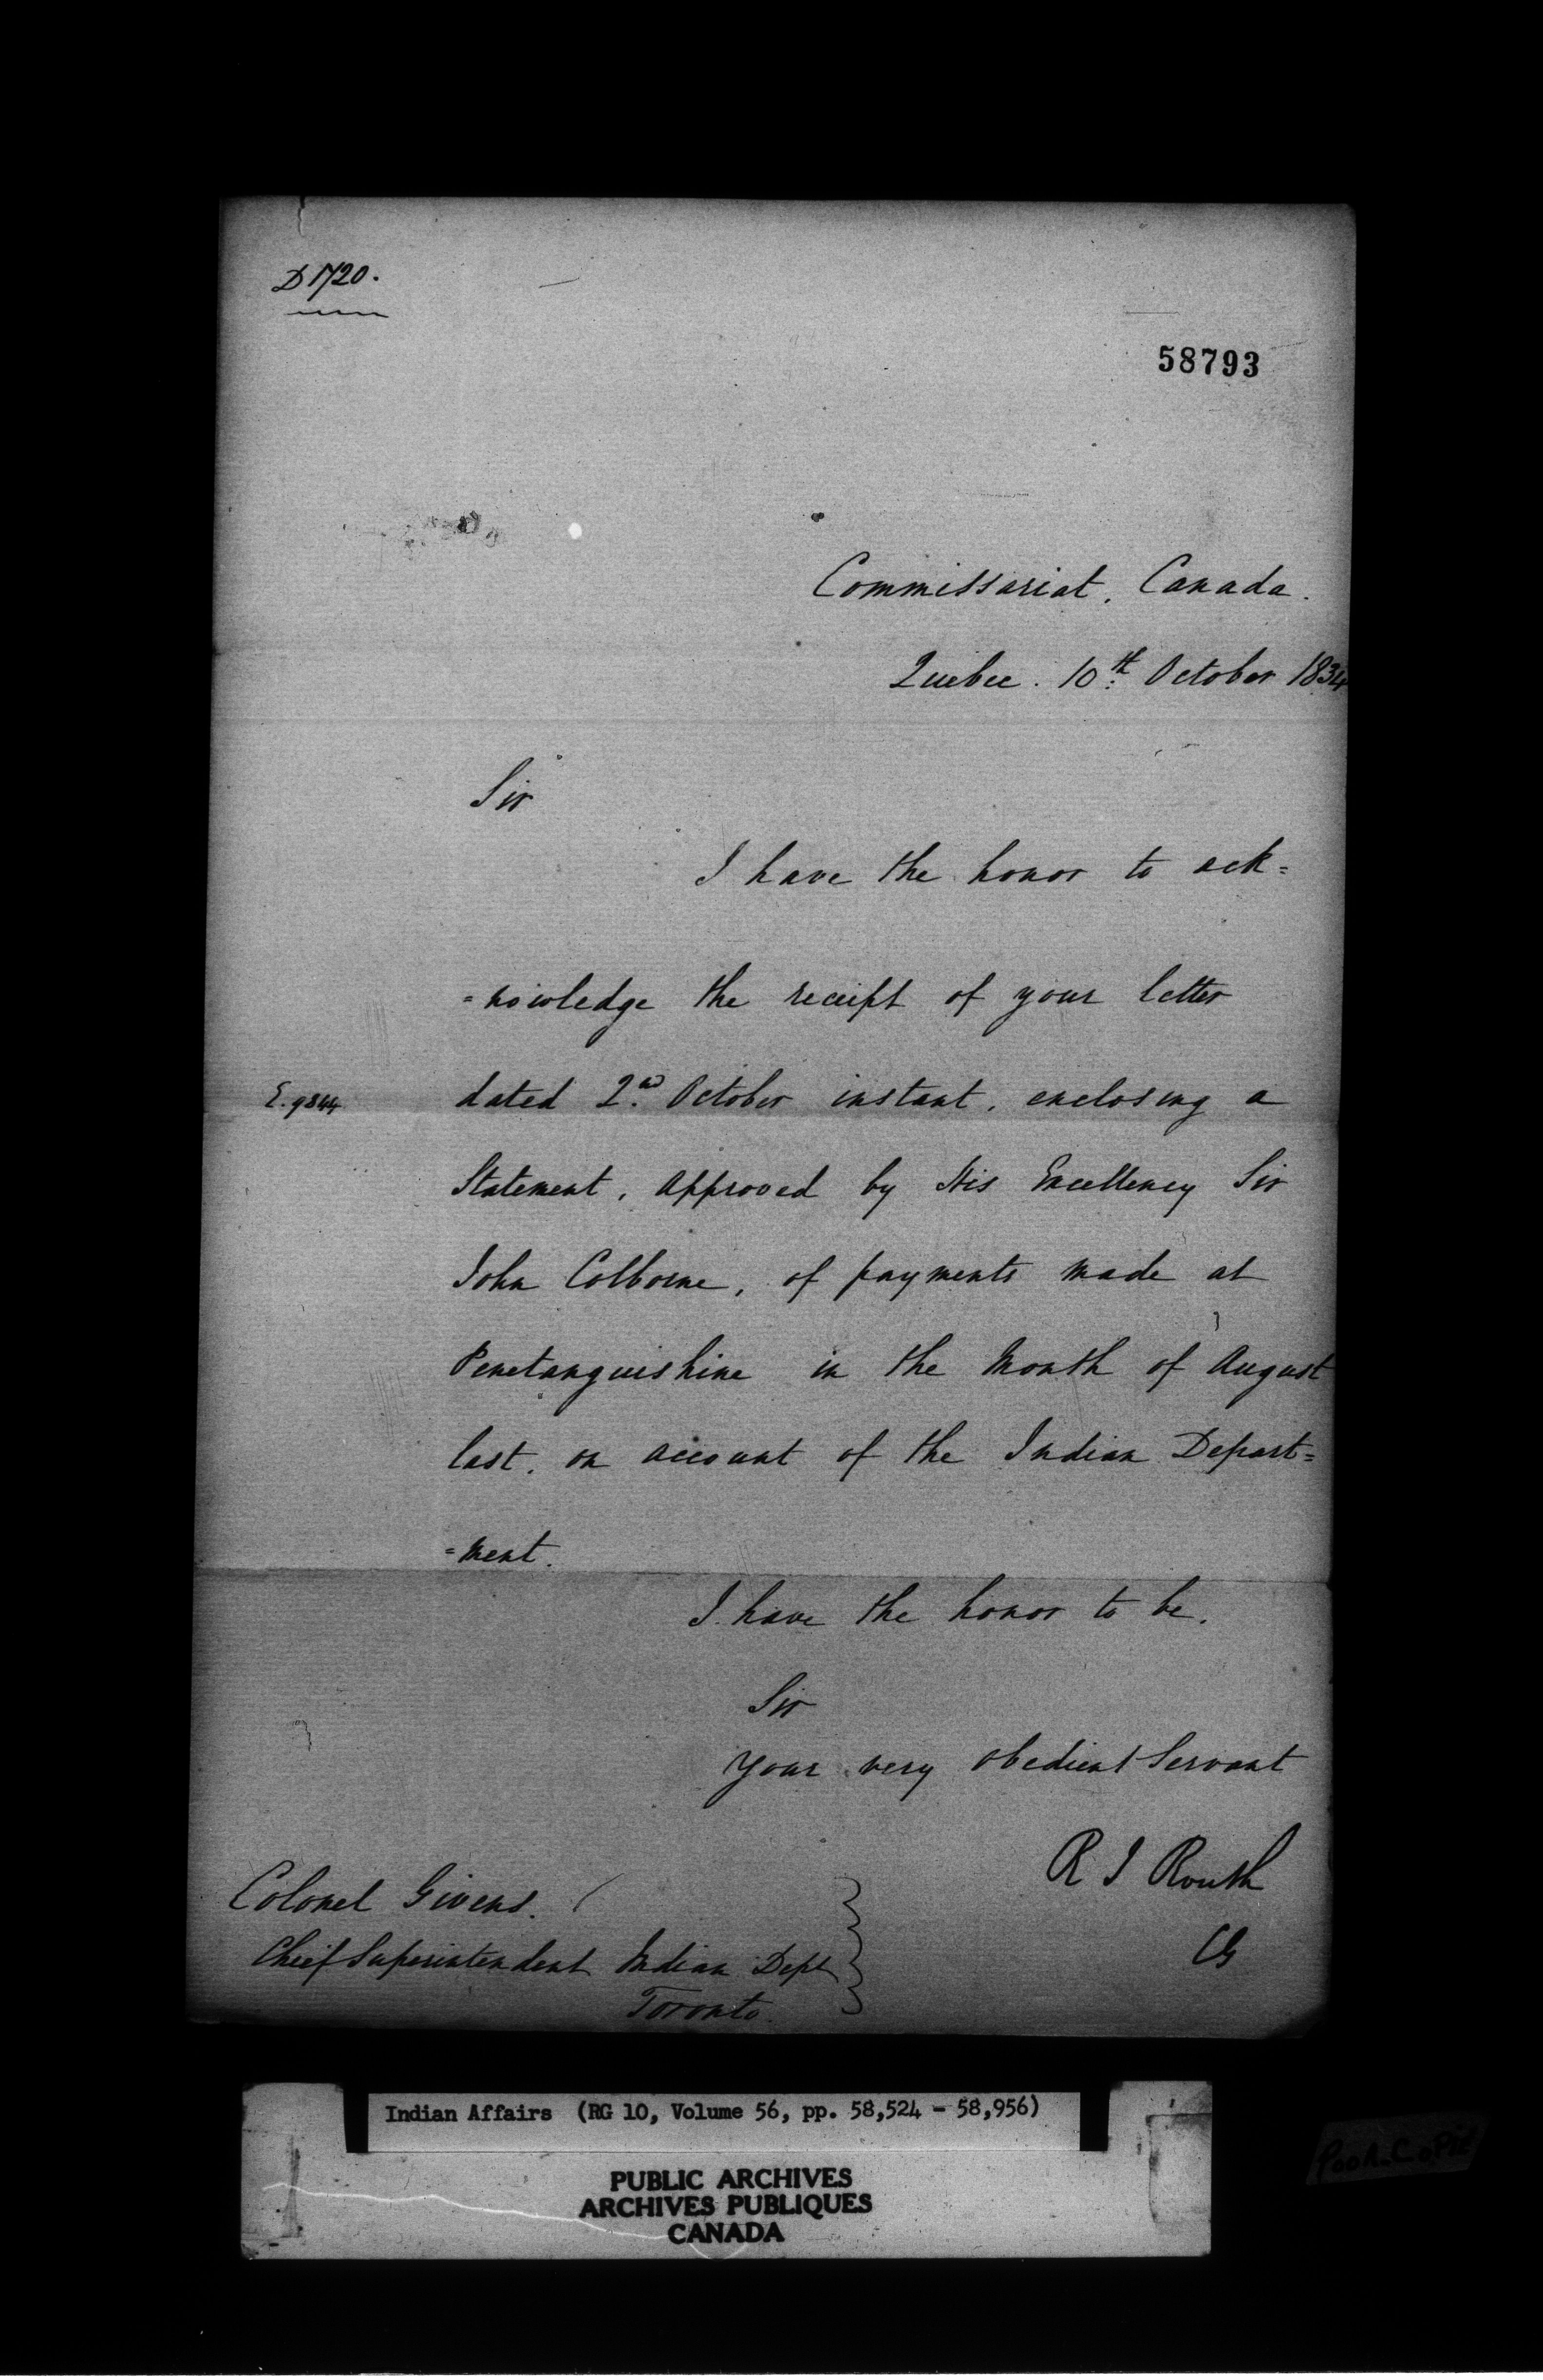 D 1720.
58793
Commissariat, Canada.
Quebec. 10th October 1834
Sir
I have the honor to ack=
=nowledge the receipt of your letter
E. 9844
dated 2nd October instant, enclosing a
Statement, approved by His Excellency Sir
John Colborne, of payments made at
Penetanguishine in the Month of August
last, on account of the Indian Depart=
=ment.
I have the honor to be,
Sir
Your very obedient Servant
R I Routh
CG
Colonel Givens.
Chief Superintendent Indian Dept
Toronto.
Indian Affairs (RG 10, Volume 56, pp. 58,524 - 58,956)
PUBLIC ARCHIVES
ARCHIVES PUBLIQUES
CANADA